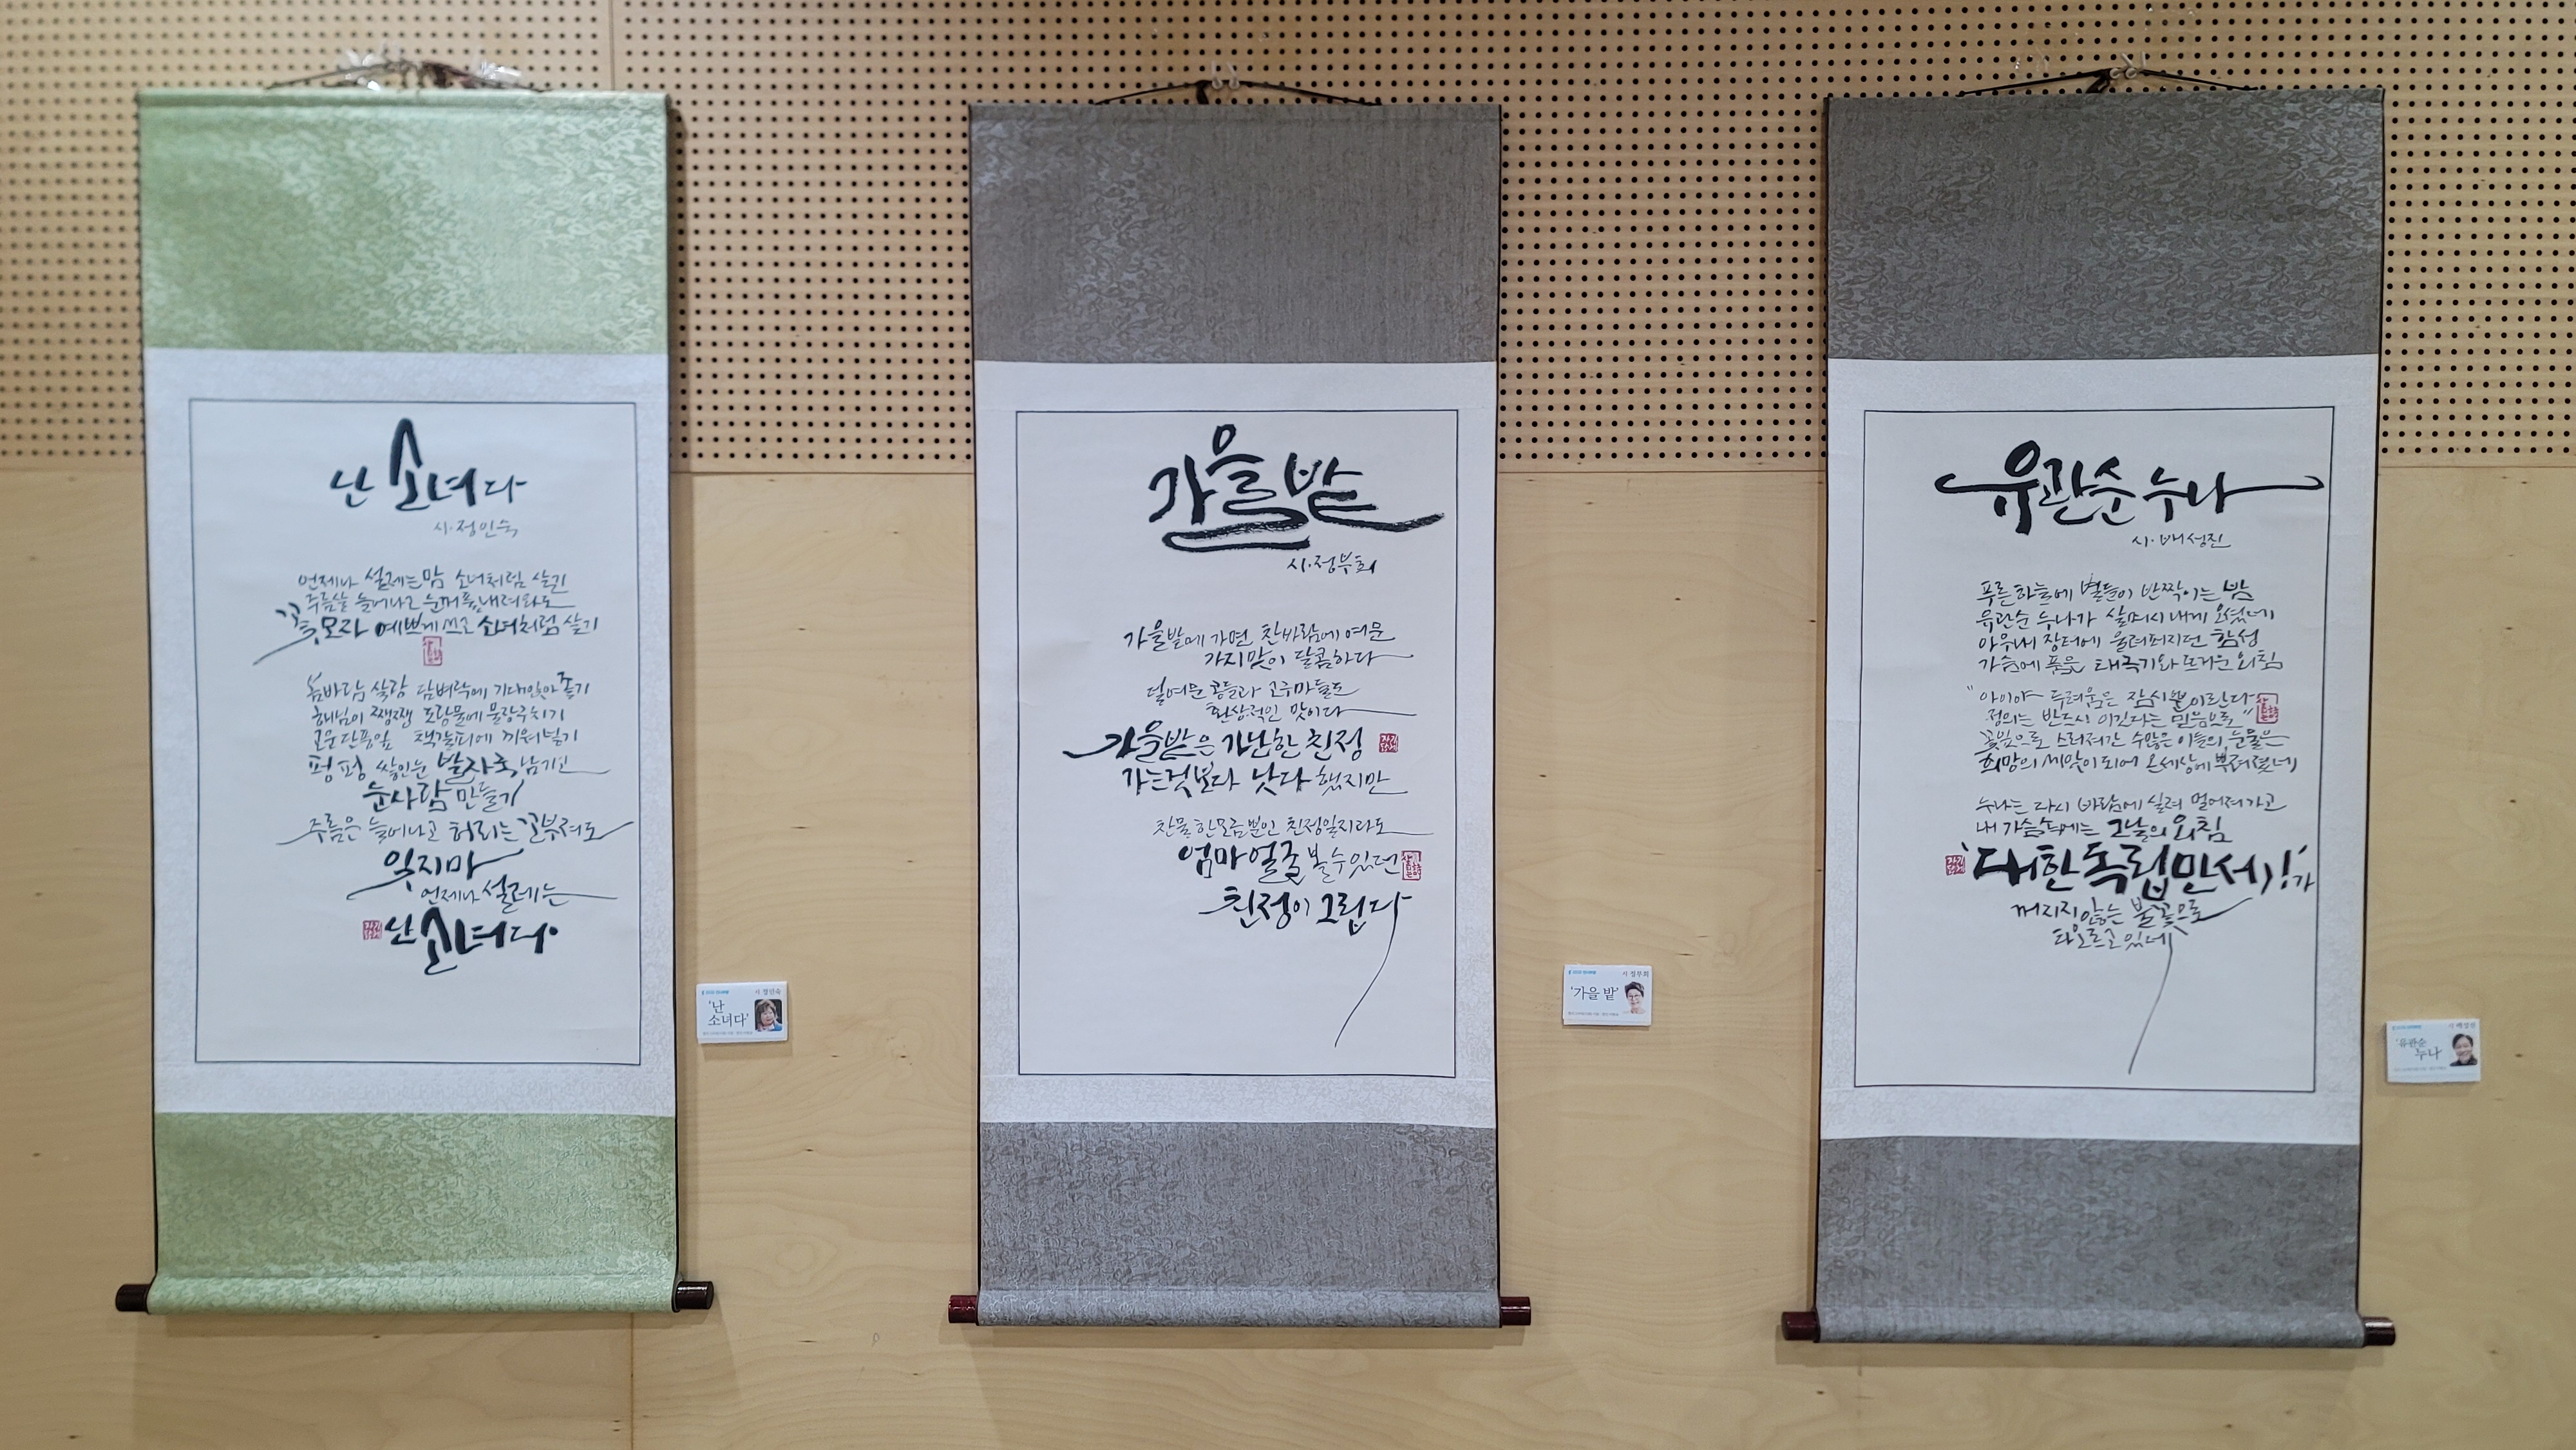 난 소녀다
시·정인숙
언제나 설레는 맘 소녀처럼 살기
주름살 늘어나고 눈꺼풀 내려와도
꽃모자 예쁘게 쓰고 소녀처럼 살기
봄바람 살랑 담벼락에 기대앉아 졸기
해님이 쨍쨍 도랑물에 물장구치기
고운 단풍잎 책갈피에 끼워넣기
펑펑 쌓인눈 발자국 남기고
눈사람 만들기
주름은 늘어나고 허리는 꼬부려도
잊지마
언제나 설레는
난 소녀다.
'난
소녀다'
시 정인숙
가을밭
시·정부희
가을밭에 가면 찬바람에 여문
가지맛이 달콤하다
덜여문 콩들과 고구마들도
환상적인 맛이다
가을밭은 가난한 친정
가는것보다 낫다 했지만
찬물 한모금 뿐인 친정일지라도
엄마 얼굴 볼 수 있던
친정이 그립다
시 정부희
'가을 밭'
유관순 누나
시·배성진
푸른 하늘에 별들이 반짝이는 밤
유관순 누나가 살며시 내게 오셨네
아우내 장터에 울려퍼지던 함성
가슴에 품은 태극기와 뜨거운 외침
"아이야 두려움은 잠시뿐이란다
정의는 반드시 이긴다는 믿음으로"
꽃잎으로 스러져간 수많은 이들의 눈물은
희망의 씨앗이 되어 온세상에 뿌려졌네
누나는 다시 바람에 실려 멀어져가고
내 가슴속에는 그날의 외침
'대한독립만세!'가
꺼지지않는 불꽃으로
타오르고 있네
시 배성진
'유관순
누나'